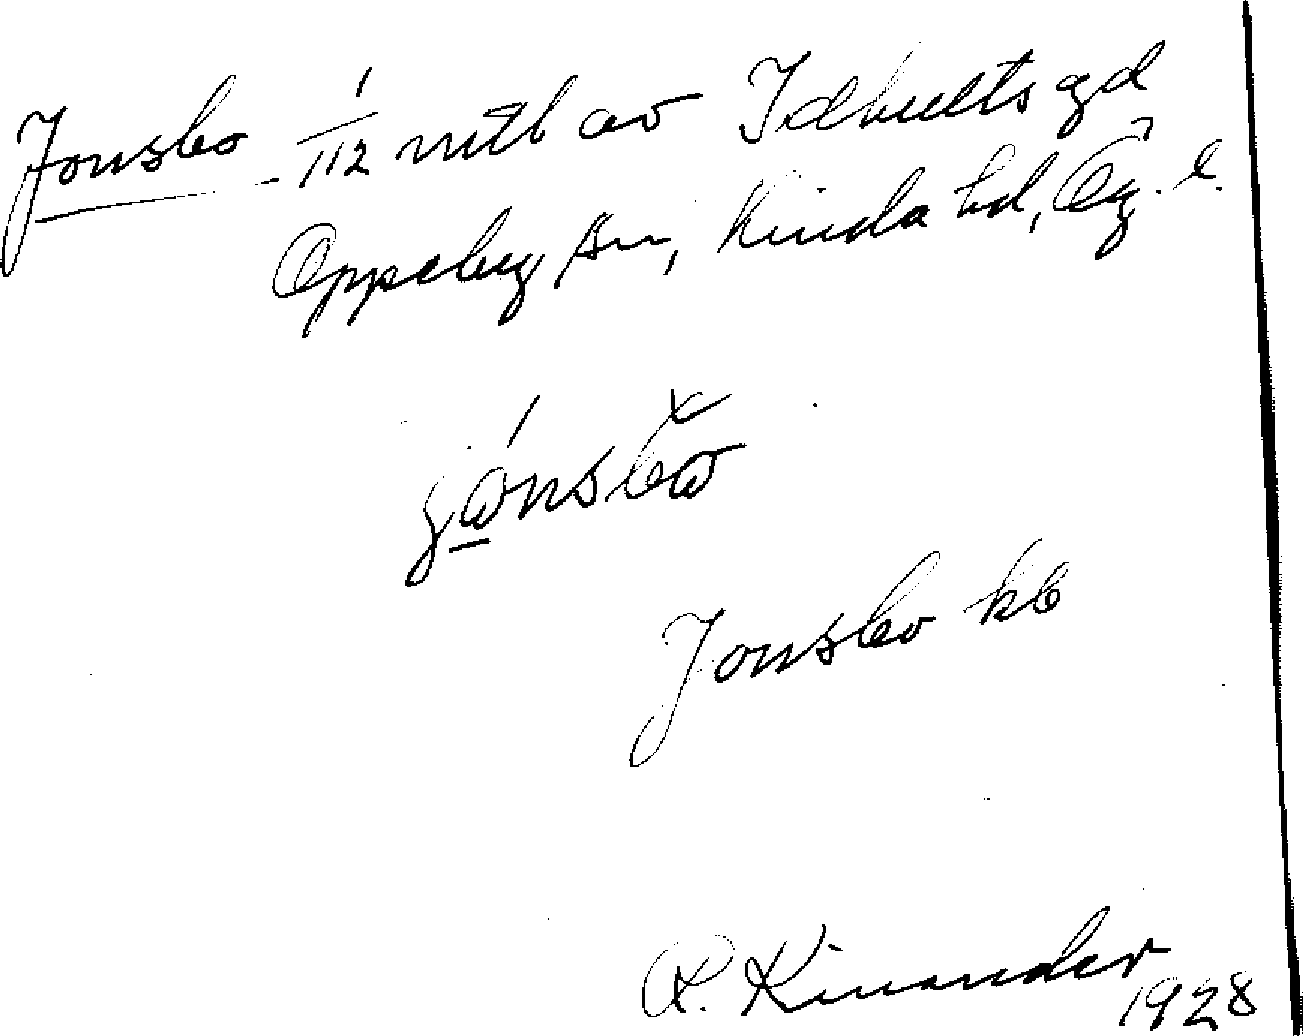 Jonsbo 1/112 mtl av Idhults gd
Oppeby sn, Kinda hd, Ög. l.
Jonsbo kb
R. Kinander
1928